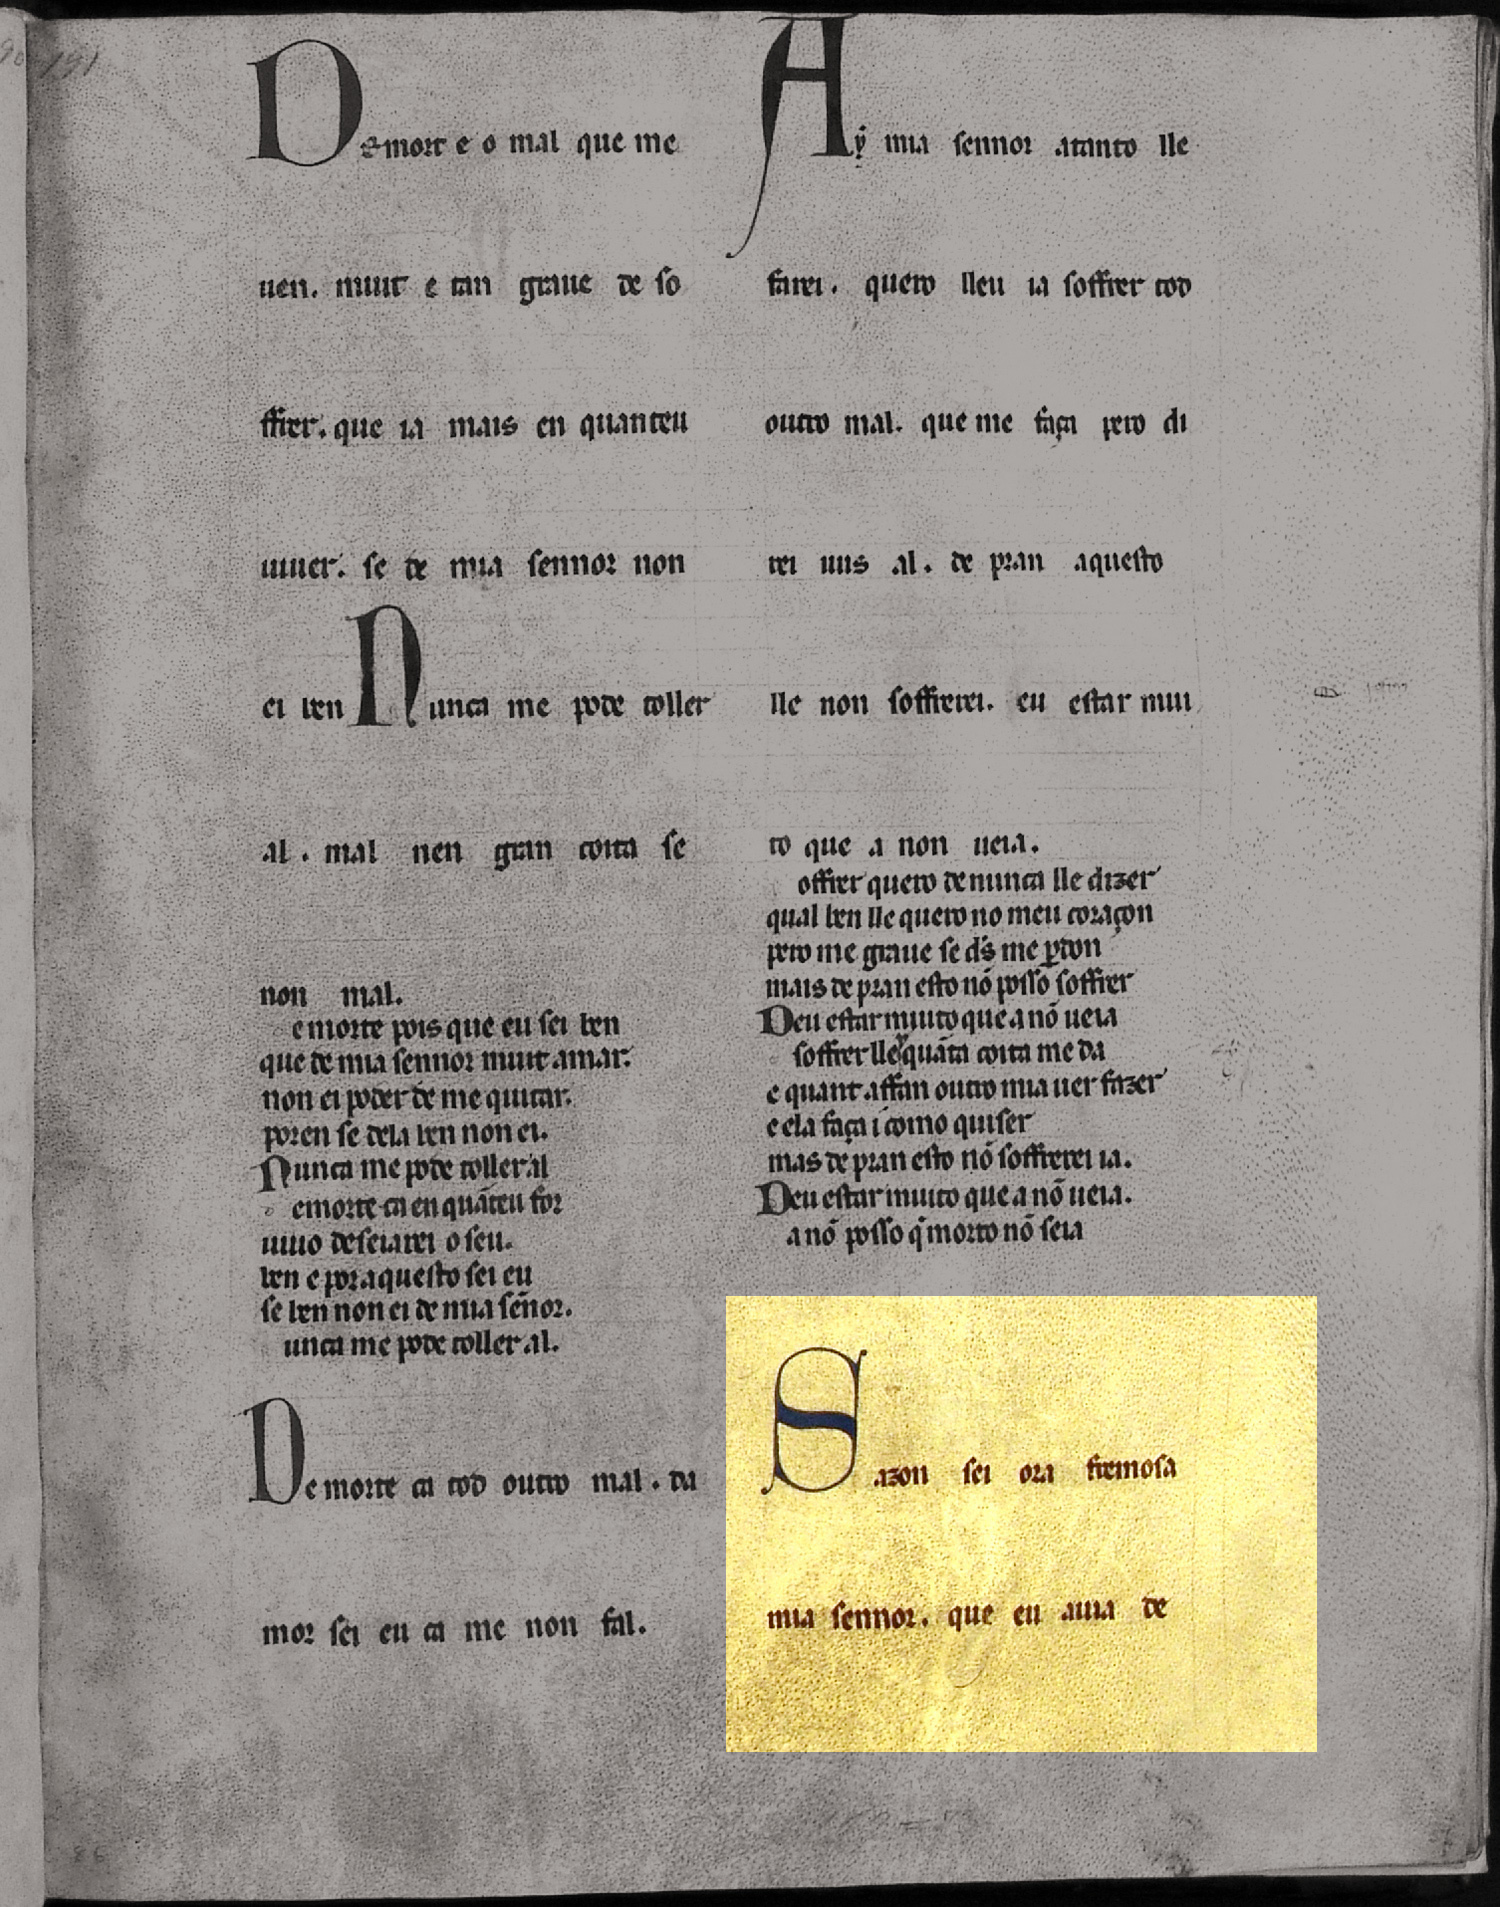 Demort e o mal que me
uen. muit e tan graue de so
ffrer. que ia mais en quanteu
uiuer. se de mia sennor non
ei ben Nunca me pode toller
al. mal nen gran coita se
non mal.
emorte pois que eu sei ben
que de mia sennor muit amar.
non ei poder de me quitar.
poren se dela ben non ei.
Nunca me pode toller al
emorte ca en quãteu for
uiuo deseiarei o seu.
ben e por aquesto sei eu
se ben non ei de mia señor.
unca me pode toller al.
De morte ca tod outro mal. da
mor sei eu ca me non fal.
Aẏ mia sennor atanto lle
farei. quero lleu ia soffrer tod
outro mal. que me faça pero di
rei uus al. de pran aquesto
lle non soffrerei. eu estar mui
to que a non ueia.
offrer quero de nunca lle dizer
qual ben lle quero no meu coraçon
pero me graue se d's me p̱don
mais de pran esto nõ posso soffrer
Deu estar muito que a nõ ueia
soffrer lle quãta coita me da
e quant affan outro mia uer fazer
e ela faça i como quiser
mas de pran esto nõ soffrerei ia.
Deu estar muito que a nõ ueia.
a nõ posso q̃ morto nõ seia
Sazon sei ora fremosa
mia sennor. que eu auia de